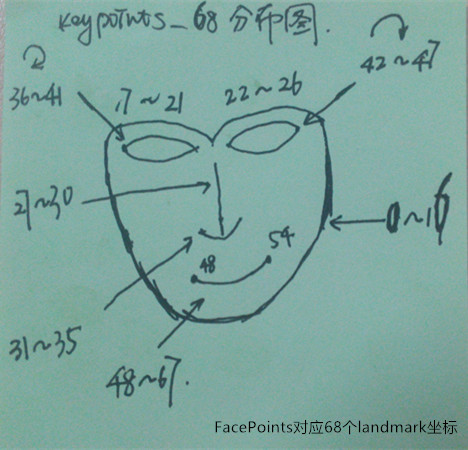 keypoints_68 分布图.
42~47
36~41
17~21
22~26
27~30
0~16
54
48
31~35
48~67.
FacePoints对应68个landmark坐标